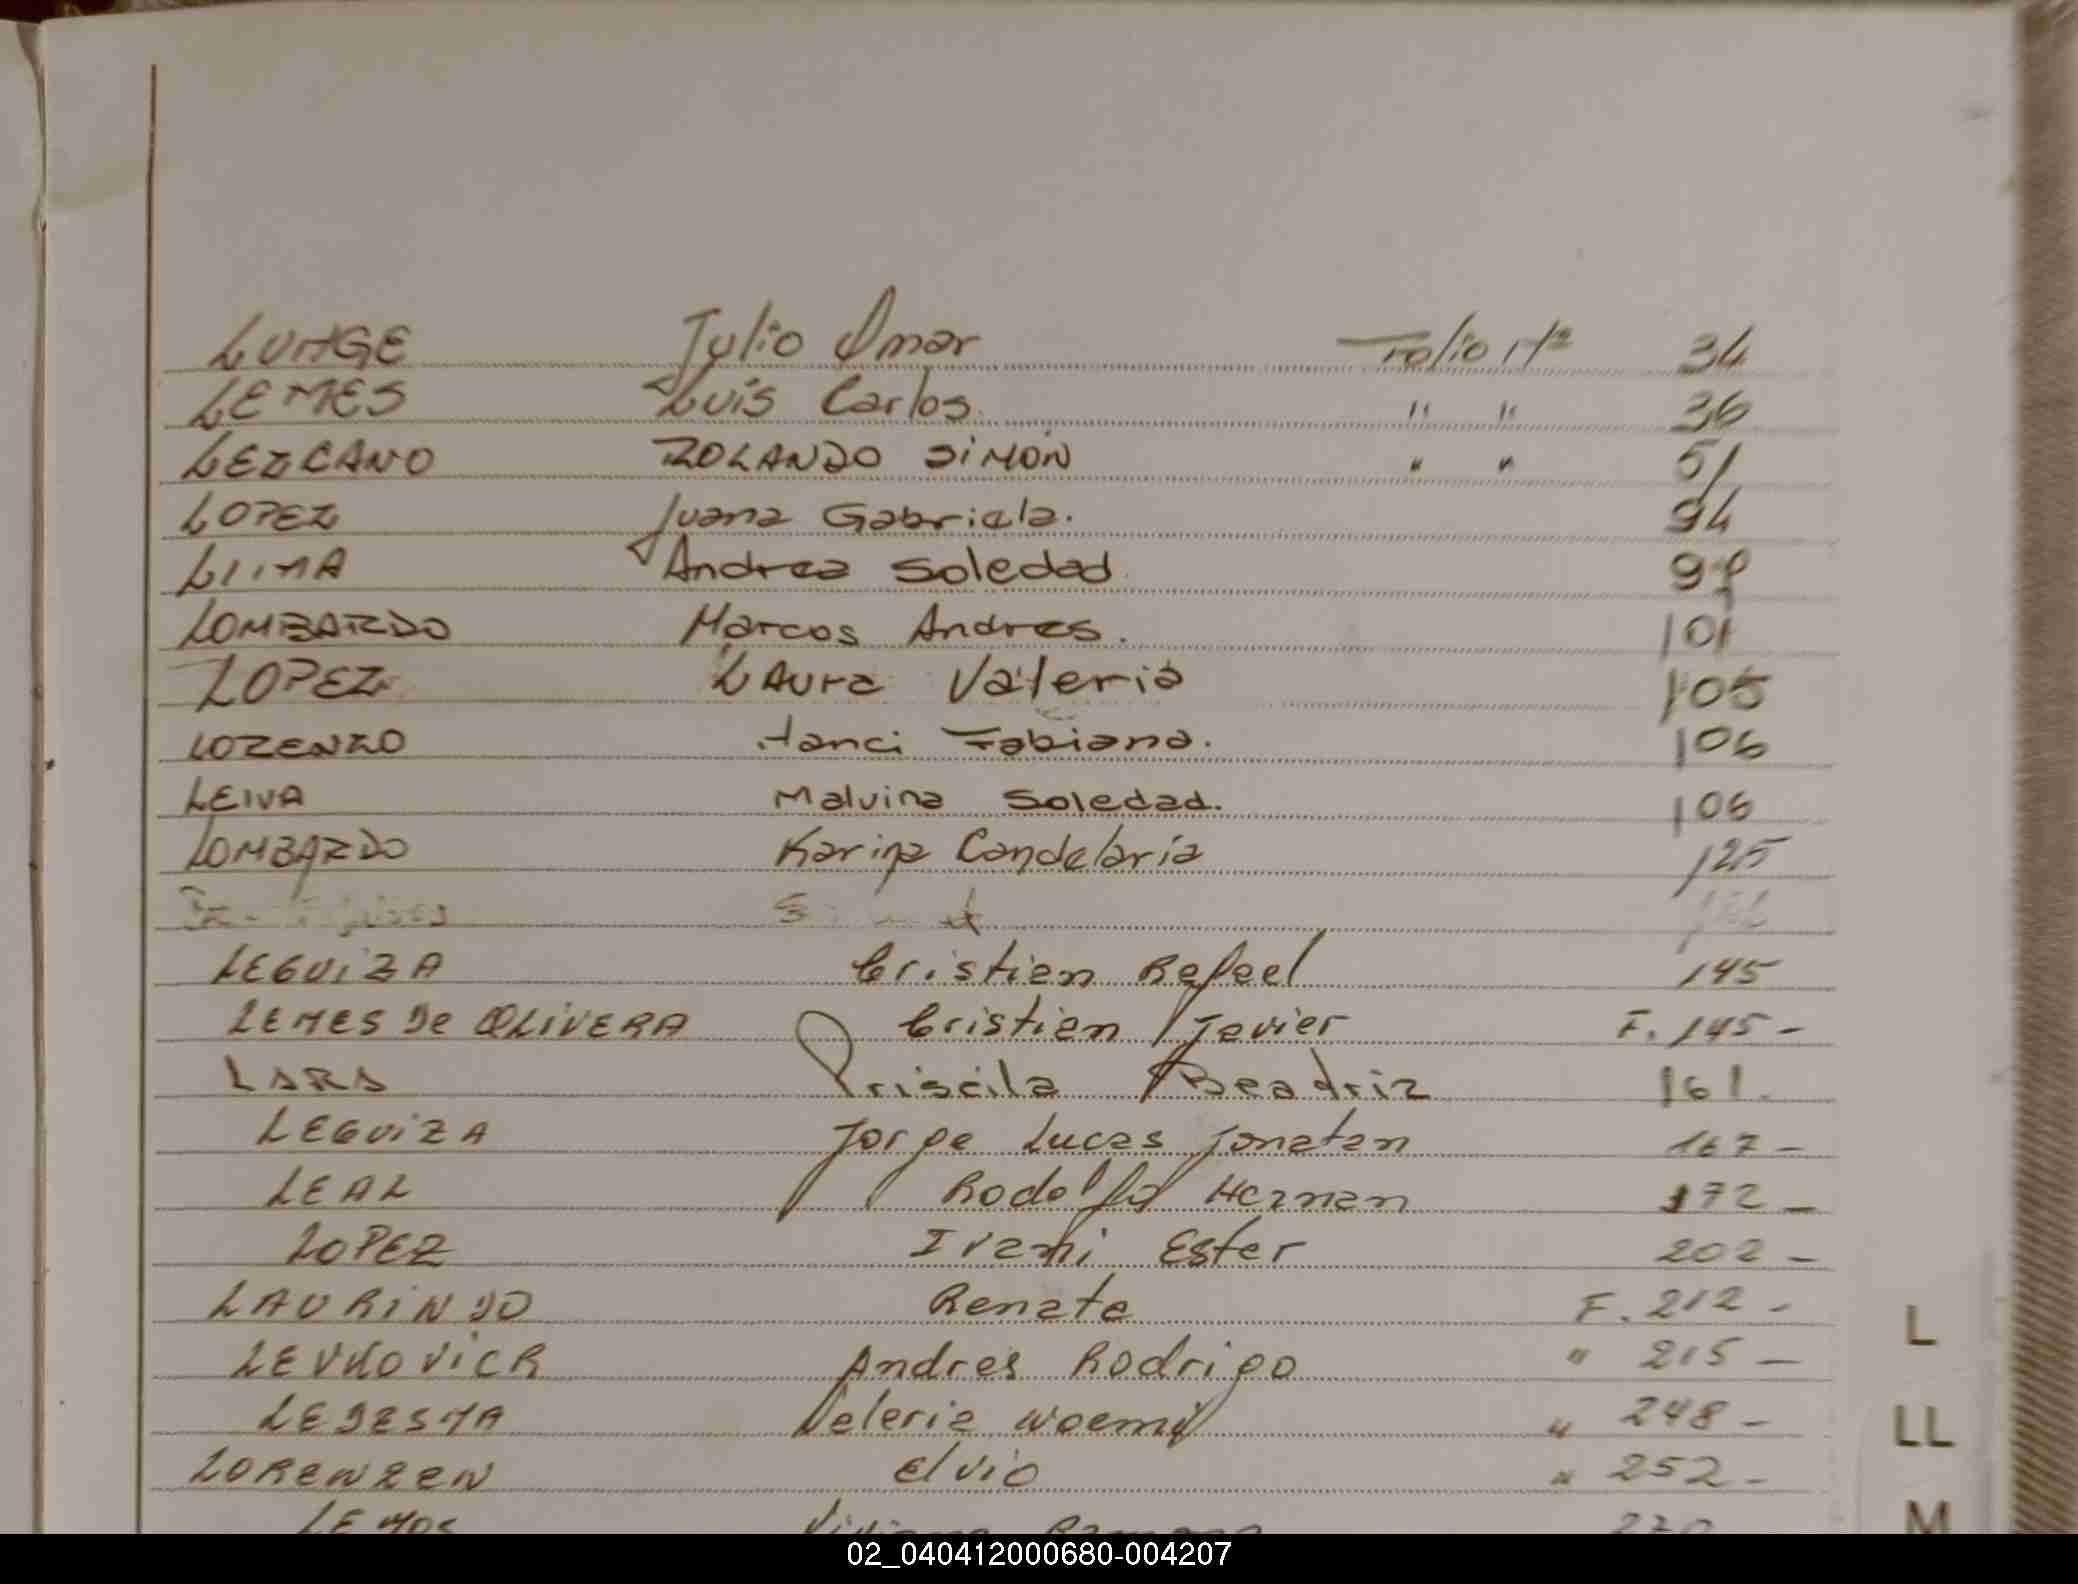 LUNGE Julio Omar Folio Nº 34
LEMES Luis Carlos. " " 36
LEZCANO ROLANDO SIMÓN " " 51
LOPEZ Juana Gabriela. 94
LIMA Andrea Soledad 98
LOMBARDO Marcos Andres. 101
LOPEZ LAura Valeria 105
LORENZO Fabiana. 106
LEIVA Malvina Soledad. 106
LOMBARDO Karina Candelaria 125
LEGUIZA Cristian Rafael 145
LEMES De OLIVERA Cristian Javier F. 145 -
LARA Priscila Beadriz 161.
LEGUIZA Jorge Lucas Jonatan 167 -
LEAL Rodolfo Hernan 172 -
LOPEZ Irani Ester 202 -
LAURINDO Renata F. 212 -
Andres Rodrigo " 215 -
LEDESMA Valeria Noemi " 248 -
LORENZEN Elvio " 252 -
LEMOS Viviana Ramona 270
L
LL
M
02_040412000680-004207